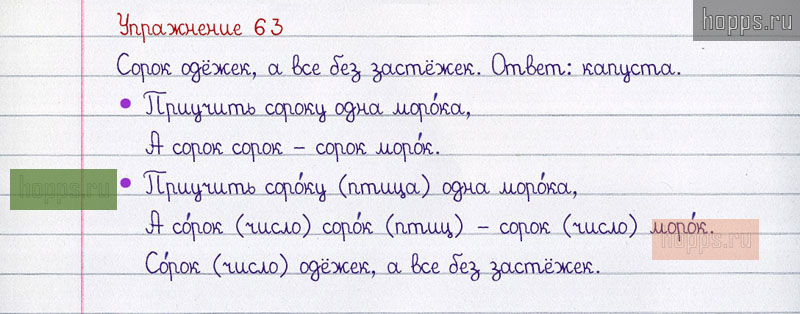 hopps.ru
Упражнение 63
Сорок одёжек, а все без застёжек. Ответ: капуста.
• Приучить сороку одна моро́ка,
А сорок сорок – сорок моро́к.
hopps.ru
• Приучить соро́ку (птица) одна моро́ка,
А со́рок (число) соро́к (птиц) – сорок (число) моро́к.
hopps.ru
Со́рок (число) одёжек, а все без застёжек.